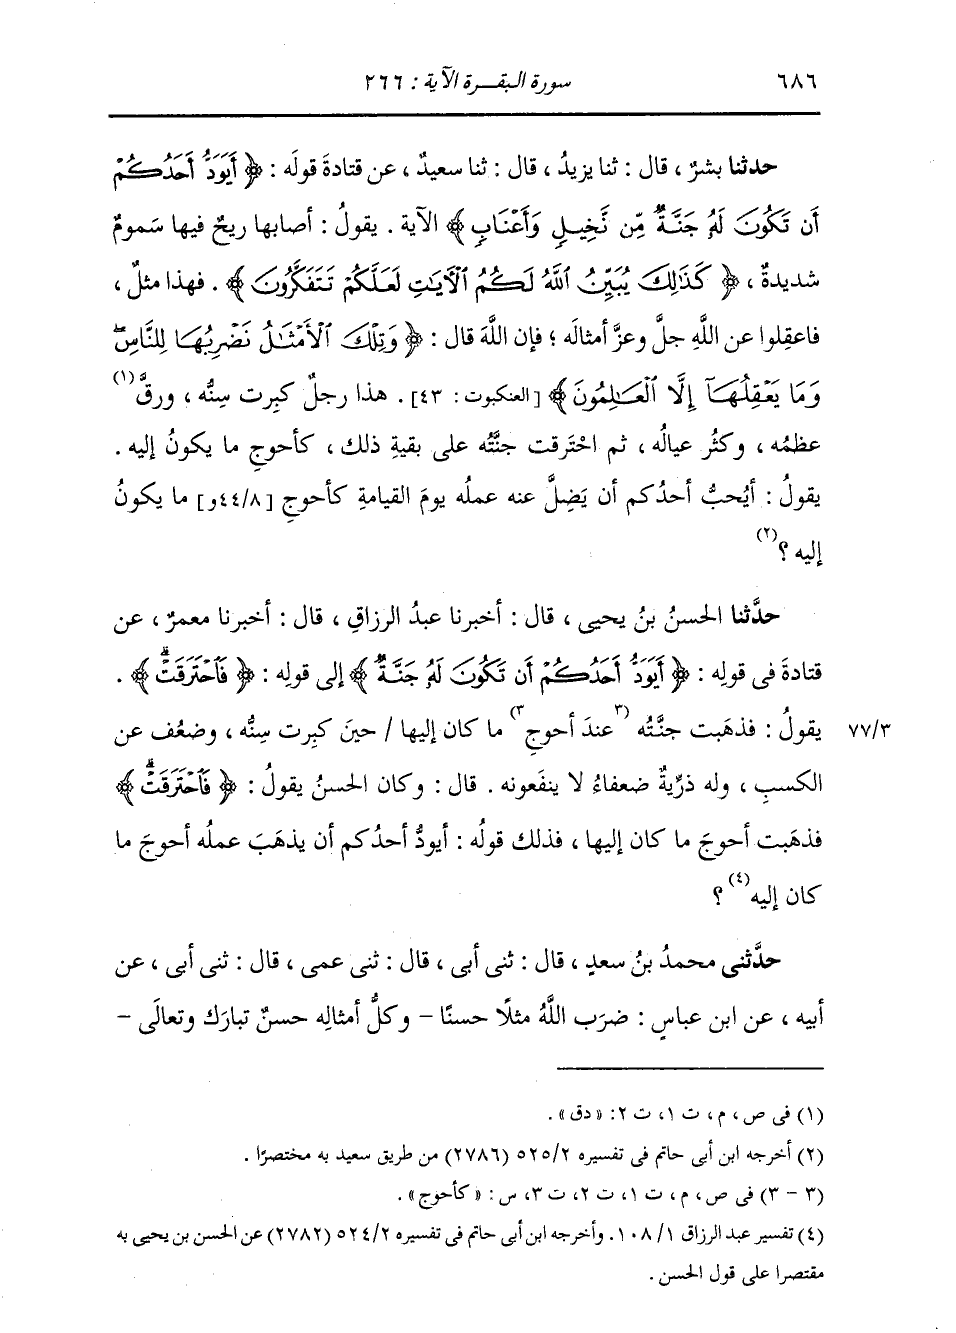 ٦٨٦ سورة البقرة الآية : ٢٦٦
حدثنا بشرٌ ، قال : ثنا يزيدُ ، قال : ثنا سعيدٌ ، عن قتادةَ قولَه : ﴿ أَيَوَدُّ أَحَدُكُمْ
أَن تَكُونَ لَهُ جَنَّةٌ مِّن نَّخِيلٍ وَأَعْنَابٍ ﴾ الآية . يقولُ : أصابها ريحٌ فيها سَمومٌ
شديدةٌ ، ﴿ كَذَٰلِكَ يُبَيِّنُ ٱللَّهُ لَكُمُ ٱلْآيَٰتِ لَعَلَّكُمْ تَتَفَكَّرُونَ ﴾ . فهذا مثلٌ ،
فاعقِلوا عن اللَّهِ جلَّ وعزَّ أمثالَه ؛ فإن اللَّهَ قال : ﴿ وَتِلْكَ ٱلْأَمْثَٰلُ نَضْرِبُهَا لِلنَّاسِۖ
وَمَا يَعْقِلُهَآ إِلَّا ٱلْعَٰلِمُونَ ﴾ [ العنكبوت : ٤٣ ] . هذا رجلٌ كبِرت سِنُّه ، ورقَّ (١)
عظمُه ، وكثُر عيالُه ، ثم احْتَرقت جنَّتُه على بقيةِ ذلك ، كأحوجِ ما يكونُ إليه .
يقولُ : أيُحبُّ أحدُكم أن يَضِلَّ عنه عملُه يومَ القيامةِ كأحوجِ [ ٤٤/٨و ] ما يكونُ
إليه ؟ (٢)
حدَّثنا الحسنُ بنُ يحيى ، قال : أخبرنا عبدُ الرزاقِ ، قال : أخبرنا معمرٌ ، عن
قتادةَ فى قولِه : ﴿ أَيَوَدُّ أَحَدُكُمْ أَن تَكُونَ لَهُ جَنَّةٌ ﴾ إلى قولِه : ﴿ فَٱحْتَرَقَتْۗ ﴾ .
يقولُ : فذهَبت جنَّتُه (٣) عندَ أحوجِ (٣) ما كان إليها / حينَ كبِرت سِنُّه ، وضعُف عن ٧٧/٣
الكسبِ ، وله ذرِّيةٌ ضعفاءُ لا ينفَعونه . قال : وكان الحسنُ يقولُ : ﴿ فَٱحْتَرَقَتْۗ ﴾
فذهَبت أحوجَ ما كان إليها ، فذلك قولُه : أيودُّ أحدُكم أن يذهَبَ عملُه أحوجَ ما
كان إليه (٤) ؟
حدَّثنى محمدُ بنُ سعدٍ ، قال : ثنى أبى ، قال : ثنى عمى ، قال : ثنى أبى ، عن
أبيه ، عن ابن عباسٍ : ضرَب اللَّهُ مثلًا حسنًا – وكلُّ أمثالِه حسنٌ تبارَك وتعالَى –
(١) فى ص ، م ، ت ١، ت ٢: « دق » .
(٢) أخرجه ابن أبى حاتم فى تفسيره ٥٢٥/٢ (٢٧٨٦) من طريق سعيد به مختصرًا .
(٣ – ٣) فى ص ، م ، ت ١، ت ٢، ت ٣، س : « كأحوج » .
(٤) تفسير عبد الرزاق ١٠٨/١. وأخرجه ابن أبى حاتم فى تفسيره ٥٢٤/٢ (٢٧٨٢) عن الحسن بن يحيى به
مقتصرا على قول الحسن .